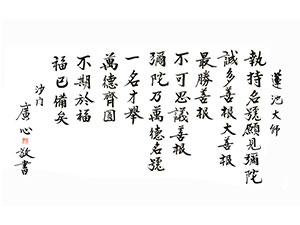 蓮池大師
執持名號願見彌陀
誠多善根大善根
最勝善根
不可思議善根
彌陀乃萬德名號
一名才舉
萬德齊圓
不期於福
福已備矣
沙門
廣心敬書